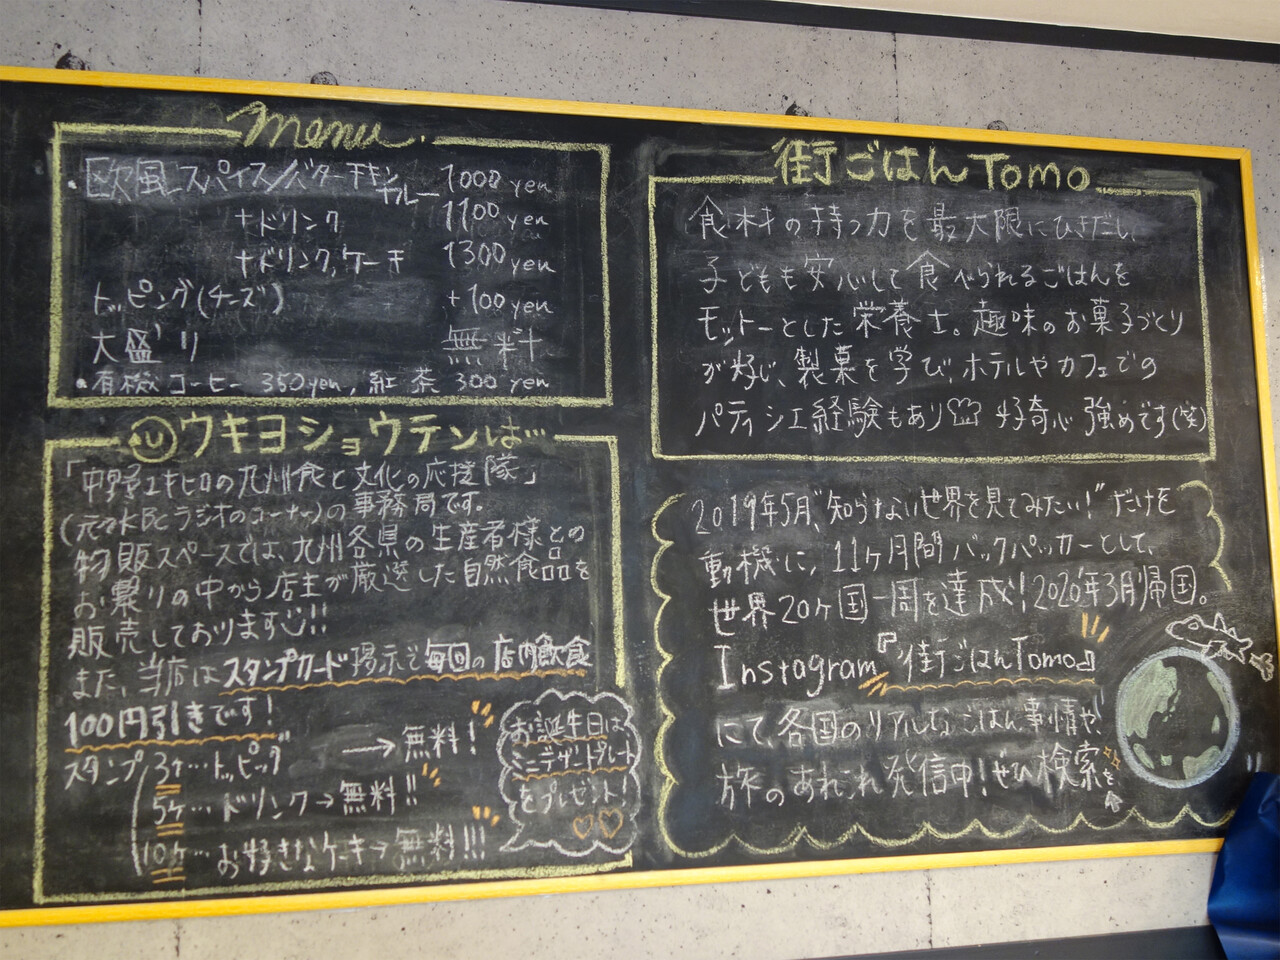 menu
・欧風スパイス/バターチキンカレー 1000yen
+ドリンク 1100yen
+ドリンク,ケーキ 1300yen
トッピング(チーズ) +100yen
大盛り 無料
・有機コーヒー 350yen, 紅茶 300yen
ウキヨショウテンは…
「中野ユキヒロの九州食と文化の応援隊」
(元々KBCラジオのコーナー)の事務局です。
物販スペースでは、九州各県の生産者様との
お繋りの中から店主が厳選した自然食品を
販売しております!!
また、当店はスタンプカード掲示で毎回の店内飲食
100円引きです!
スタンプ 3ケ…トッピング → 無料!
5ケ…ドリンク→無料!!
10ケ…お好きなケーキ→無料!!!
お誕生日は
ミニデザートプレート
をプレゼント!
街ごはんTomo
食材の持つ力を最大限にひきだし、
子どもも安心して食べられるごはんを
モットーとした栄養士。趣味のお菓子づくり
が好じ、製菓を学び、ホテルやカフェでの
パティシエ経験もあり 好奇心強めです(笑)
2019年5月、"知らない世界を見てみたい!"だけを
動機に、11ヶ月間バックパッカーとして、
世界20ヶ国一周を達成!2020年3月帰国。
Instagram『街ごはんTomo』
にて、各国のリアルなごはん事情や、
旅のあれこれ発信中!ぜひ検索を